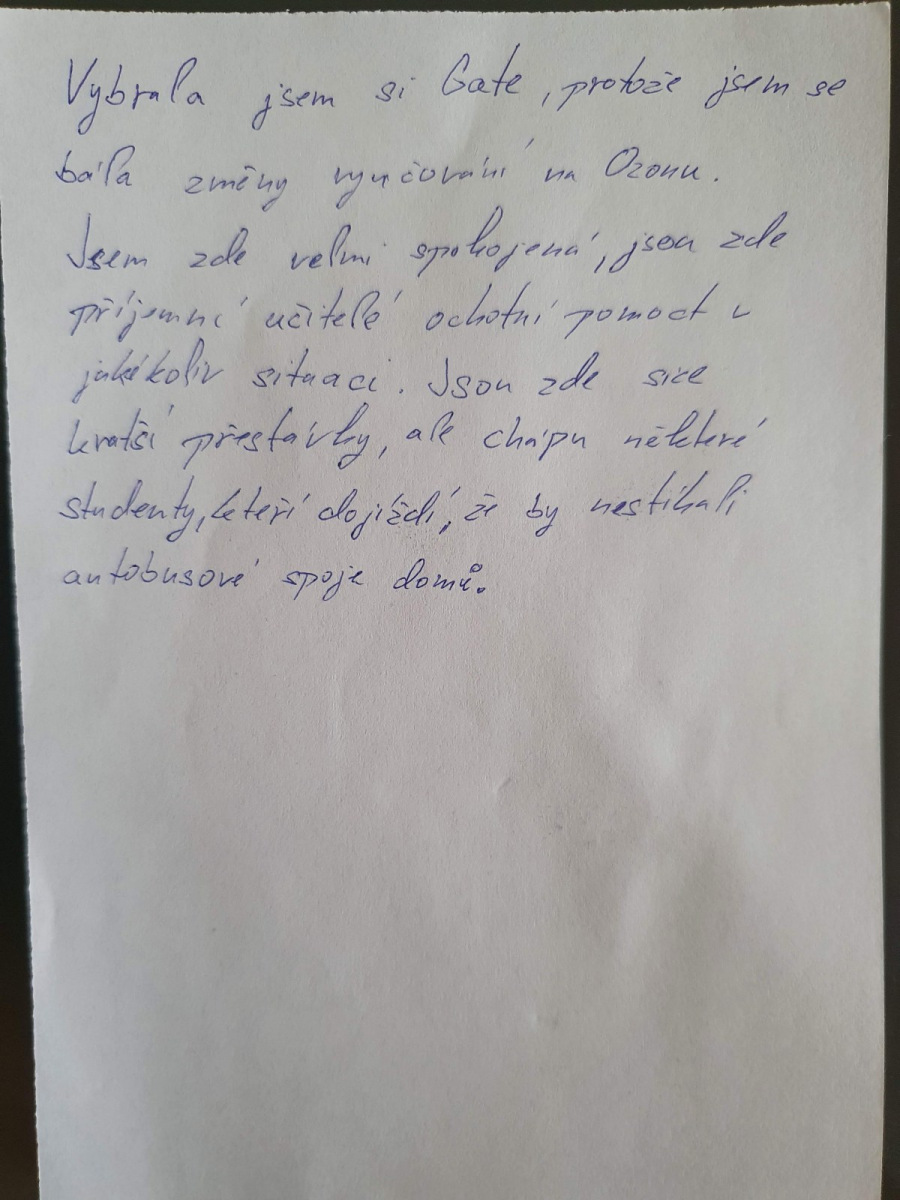 Vybrala jsem si Gate, protože jsem se
bála změny vyučování na Ozonu.
Jsem zde velmi spokojená, jsou zde
příjemní učitelé ochotní pomoct v
jakékoliv situaci. Jsou zde sice
kratší přestávky, ale chápu některé
studenty, kteří dojíždí, že by nestíhali
autobusové spoje domů.